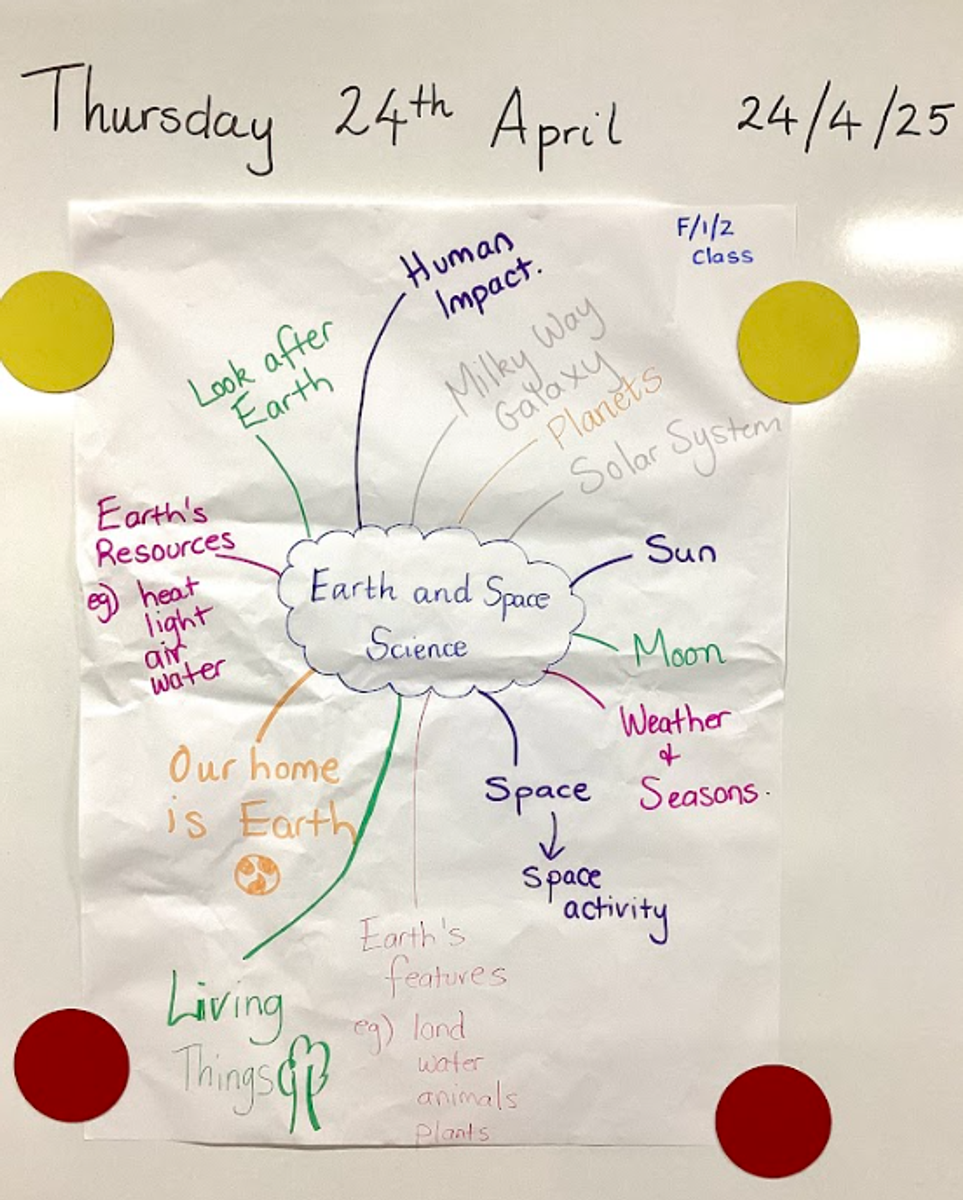 Thursday 24th April 24/4/25
F/1/2
Class
Human
Impact.
Look after
Earth
Milky Way
Galaxy
Planets
Solar System
Earth's
Resources
eg) heat
light
air
water
Earth and Space
Science
Sun
Moon
Weather
&
Seasons.
Our home
is Earth
Space
↓
Space
activity
Living
Things
Earth's
features
eg) land
water
animals
plants